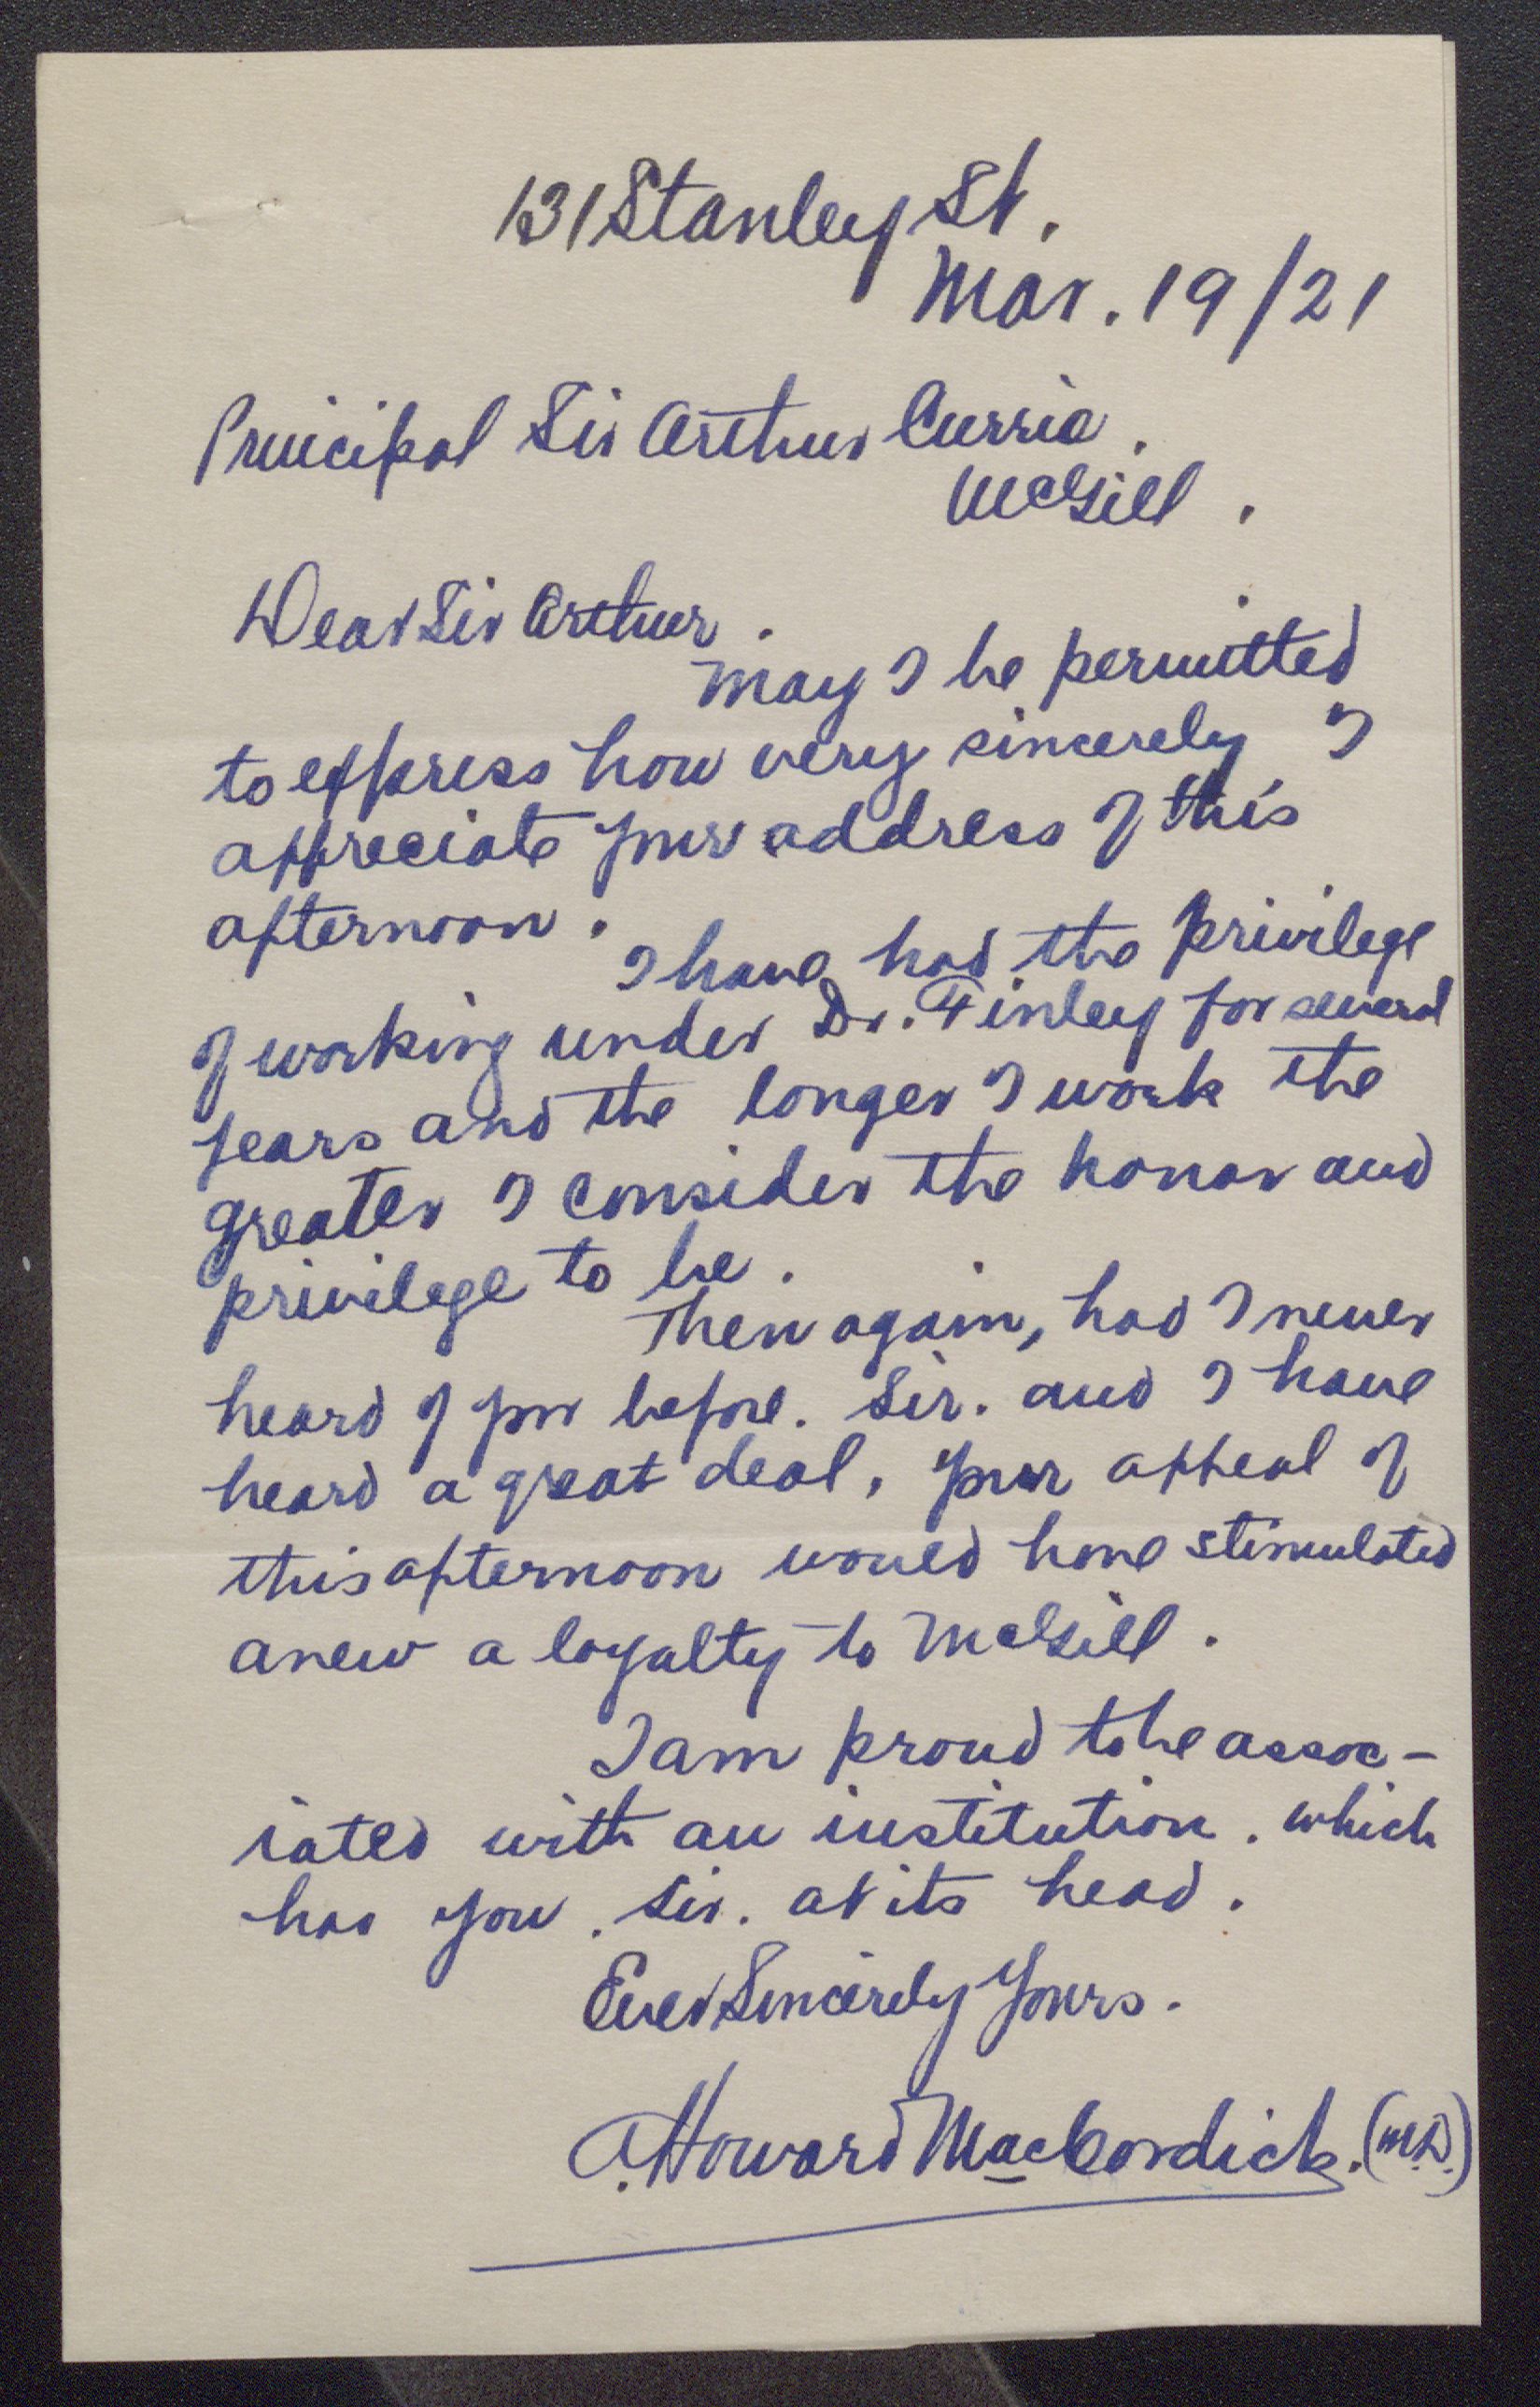 131 Stanley St.
Mar. 19/21
Principal Sir Arthur Currie.
McGill.
Dear Sir Arthur.
May I be permitted
to express how very sincerely I
appreciate your address of this
afternoon.
I have had the privilege
of working under Dr. Finley for several
years and the longer I work the
greater I consider the honor and
privilege to be.
Then again, had I never
heard of you before. Sir. and I have
heard a great deal, your appeal of
this afternoon would have stimulated
anew a loyalty to McGill.
I am proud to be assoc-
iated with an institution. which
has you. Sir. at its head.
Ever Sincerely Yours.
A. Howard MacCordick. (M.D.)